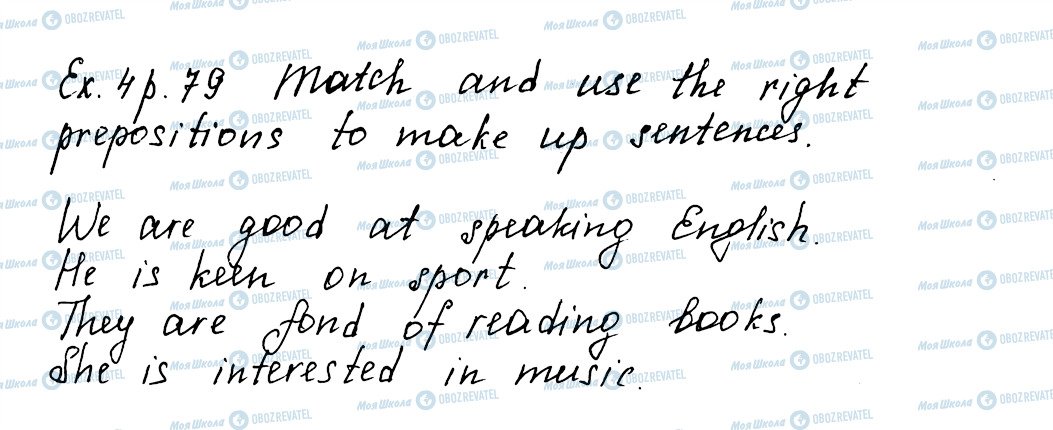 Ex. 4 p. 79 Match and use the right
prepositions to make up sentences.
We are good at speaking English.
He is keen on sport.
They are fond of reading books.
She is interested in music.